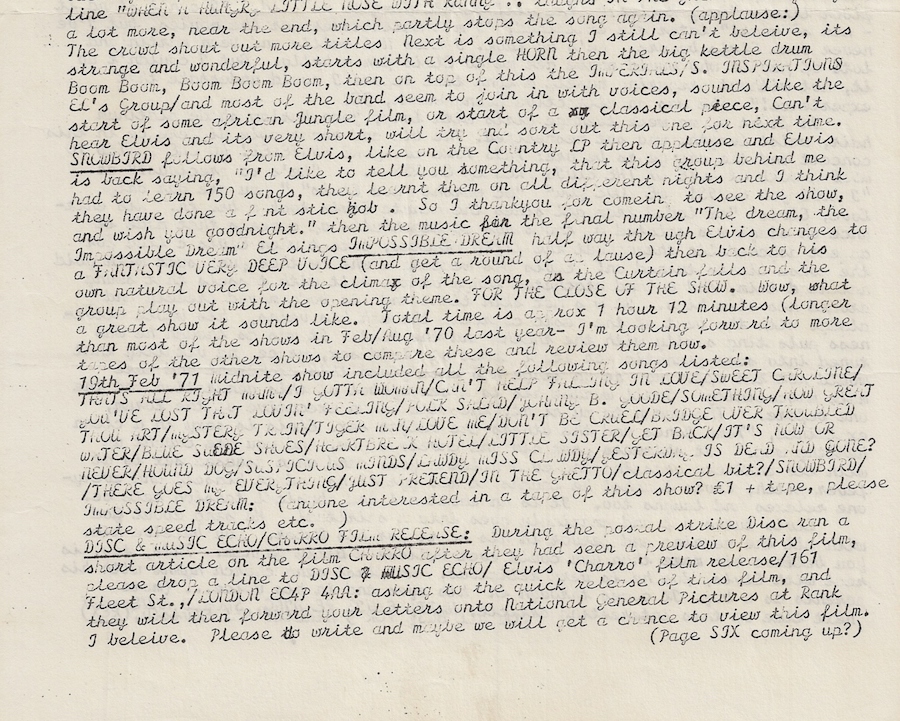 line "WHEN A HUNGRY LITTLE NOSE WITH
a lot more, near the end, which partly stops the song again. (applause:)
The crowd shout out more titles Next is something I still can't beleive, its
strange and wonderful, starts with a single HORN then the big kettle drum
Boom Boom, Boom Boom Boom, then on top of this the IMPERIALS/S. INSPIRATIONS
EL's Group/and most of the band seem to join in with voices, sounds like the
start of some african Jungle film, or start of a classical piece, Can't
hear Elvis and its very short, will try and sort out this one for next time.
SNOWBIRD follows from Elvis, like on the Country LP then applause and Elvis
is back saying, "I'd like to tell you something, that this group behind me
had to learn 150 songs, they learnt them on all different nights and I think
they have done a f nt stic job . So I thankyou for comein to see the show,
and wish you goodnight." then the music for the final number "The dream, the
Impossible Dream" El sings IMPOSSIBLE DREAM half way thr ugh Elvis changes to
a FANTASTIC VERY DEEP VOICE (and get a round of a lause) then back to his
own natural voice for the climax of the song, as the Curtain falls and the
group play out with the opening theme. FOR THE CLOSE OF THE SHOW. Wow, what
a great show it sounds like. Total time is aprox 1 hour 12 minutes (longer
than most of the shows in Feb/Aug '70 last year- I'm looking forward to more
tapes of the other shows to compare these and review them now.
19th Feb '71 Midnite show included all the following songs listed:
THATS ALL RIGHT MAMA/I GOTTA WOMAN/CAN'T HELP FALLING IN LOVE/SWEET CAROLINE/
YOU'VE LOST THAT LOVIN' FEELING/POLK SALAD/JOHNNY B. GOODE/SOMETHING/HOW GREAT
THOU ART/MYSTERY TRAIN/TIGER MAN/LOVE ME/DON'T BE CRUEL/BRIDGE OVER TROUBLED
WATER/BLUE SUEDE SHOES/HEARTBREAK HOTEL/LITTLE SISTER/GET BACK/IT'S NOW OR
NEVER/HOUND DOG/SUSPICIOUS MINDS/LAWDY MISS CLAWDY/YESTERDAY IS DEAD AND GONE?
/THERE GOES MY EVERYTHING/JUST PRETEND/IN THE GHETTO/classical bit?/SNOWBIRD/
IMPOSSIBLE DREAM: (anyone interested in a tape of this show? £1 + tape, please
state speed tracks etc. )
DISC & MUSIC ECHO/CHARRO FILM RELEASE: During the postal strike Disc ran a
short article on the film CHARRO after they had seen a preview of this film,
please drop a line to DISC & MUSIC ECHO/ Elvis 'Charro' film release/161
Fleet St.,/LONDON EC4P 4AA: asking to the quick release of this film, and
they will then forward your letters onto National General Pictures at Rank
I beleive. Please do write and maybe we will get a chance to view this film.
(Page SIX coming up?)